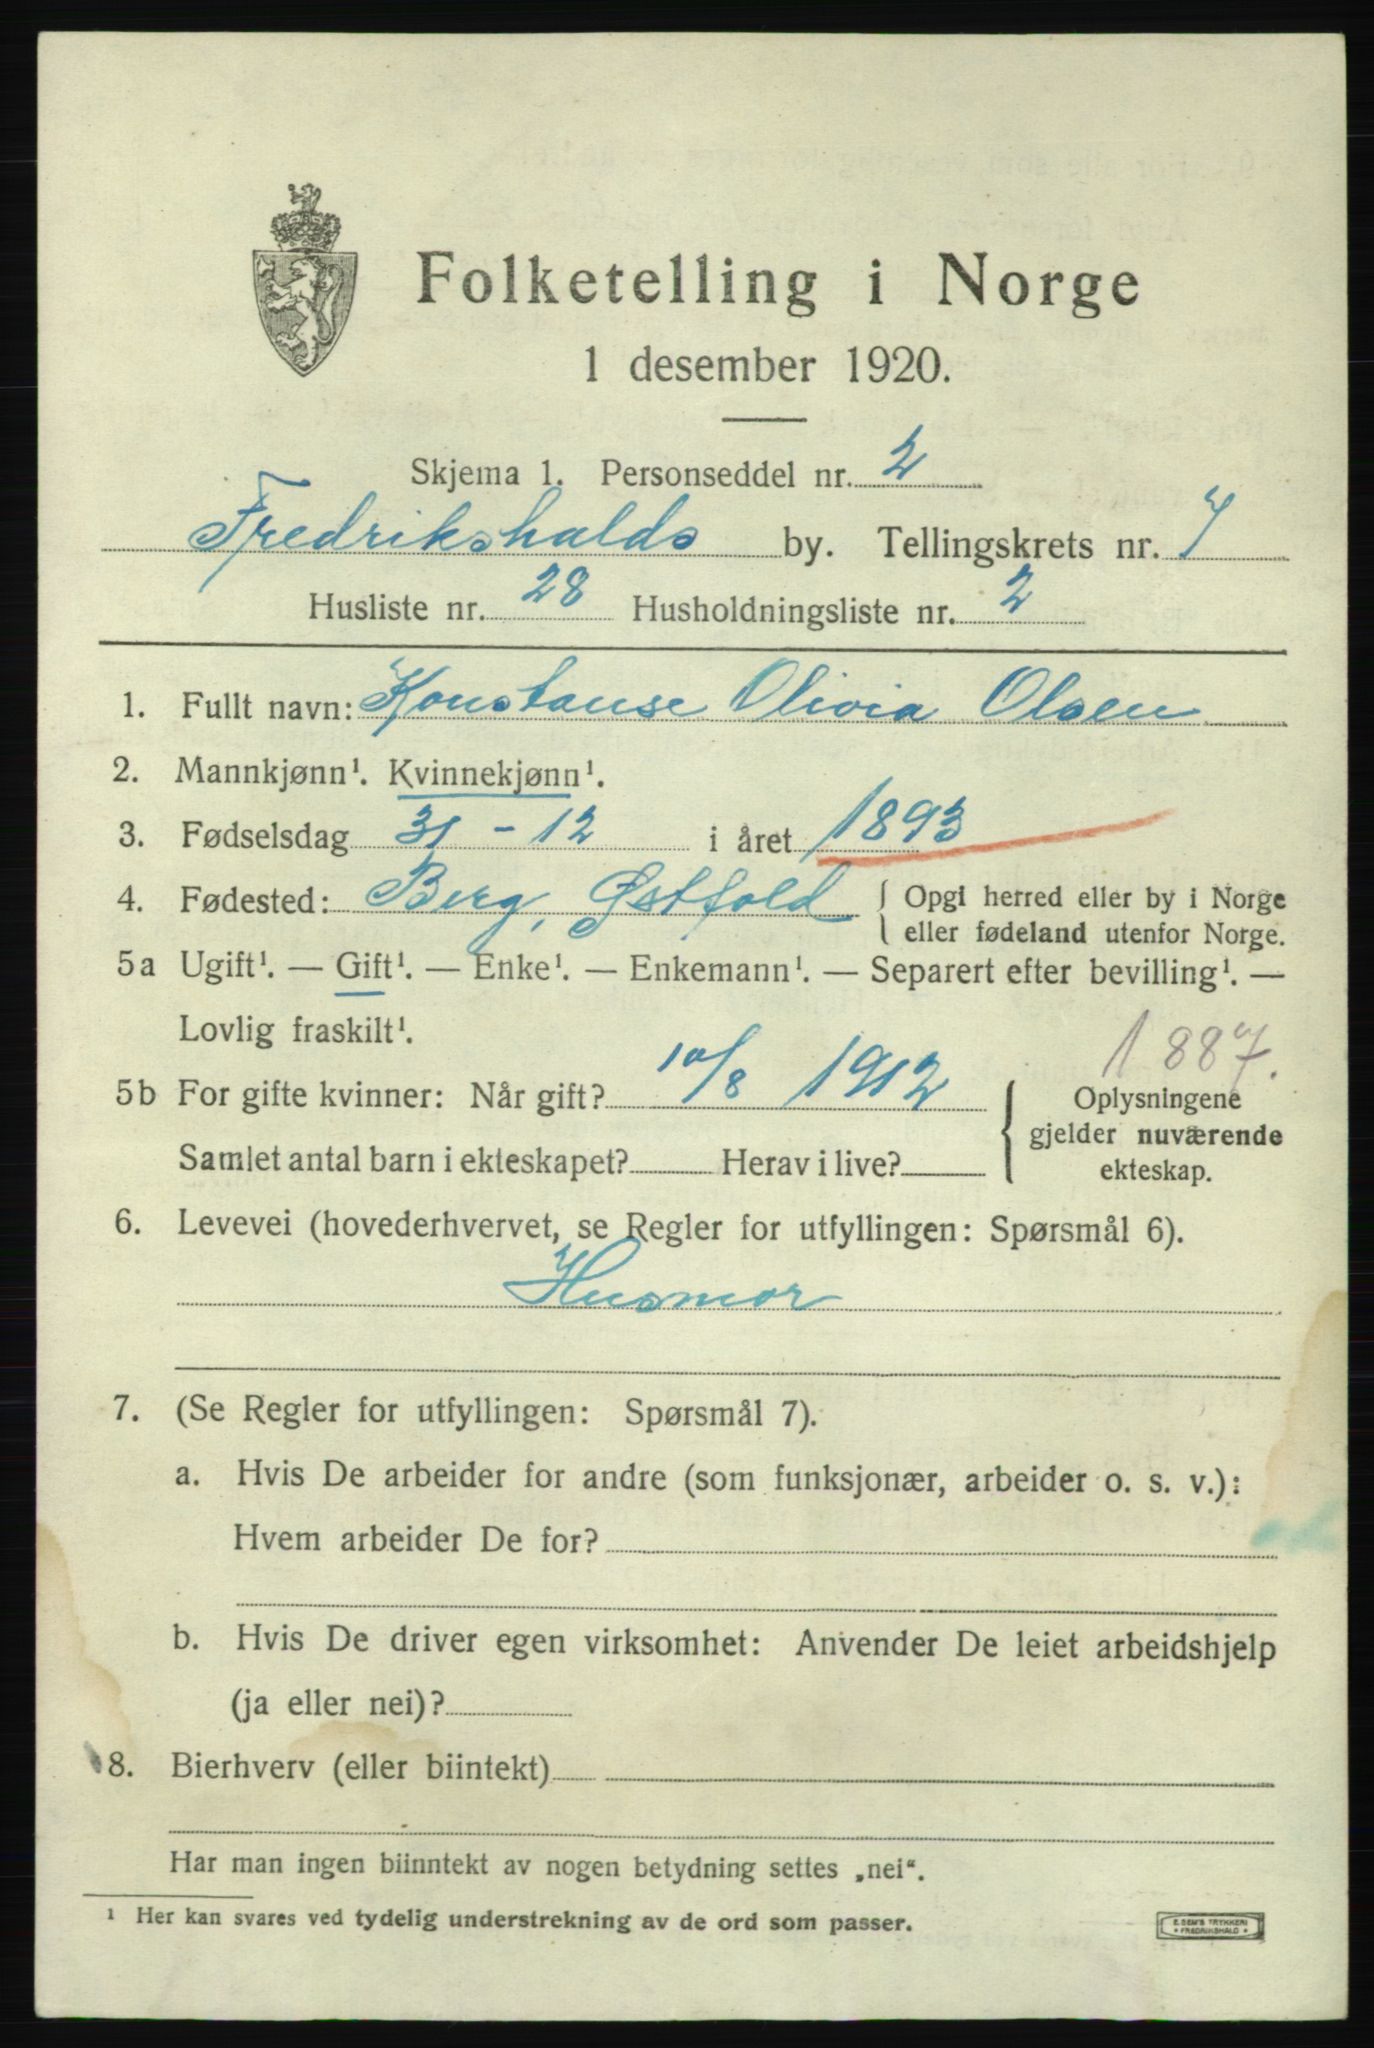 Folketelling i Norge
1 desember 1920.
Skjema 1. Personseddel nr. 2
Fredrikshalds by. Tellingskrets nr. 7
Husliste nr. 28 Husholdningsliste nr. 2
1. Fullt navn: Konstanse Olivia Olsen
2. Mannkjønn¹. Kvinnekjønn¹.
3. Fødselsdag 31 - 12 i året 1893
4. Fødested: Berg, Østfold { Opgi herred eller by i Norge
eller fødeland utenfor Norge.
5a Ugift¹. — Gift¹. — Enke¹. — Enkemann¹. — Separert efter bevilling¹. —
Lovlig fraskilt¹.
1887.
5b For gifte kvinner: Når gift? 10/8 1912 Oplysningene
gjelder nuværende
Samlet antal barn i ekteskapet? Herav i live? ekteskap.
6. Levevei (hovederhvervet, se Regler for utfyllingen: Spørsmål 6).
Husmor
7. (Se Regler for utfyllingen: Spørsmål 7).
a. Hvis De arbeider for andre (som funksjonær, arbeider o. s. v.):
Hvem arbeider De for?
b. Hvis De driver egen virksomhet: Anvender De leiet arbeidshjelp
(ja eller nei)?
8. Bierhverv (eller biintekt)
Har man ingen biinntekt av nogen betydning settes „nei“.
¹ Her kan svares ved tydelig understrekning av de ord som passer.
E. SEM'S TRYKKERI
* FREDRIKSHALD *